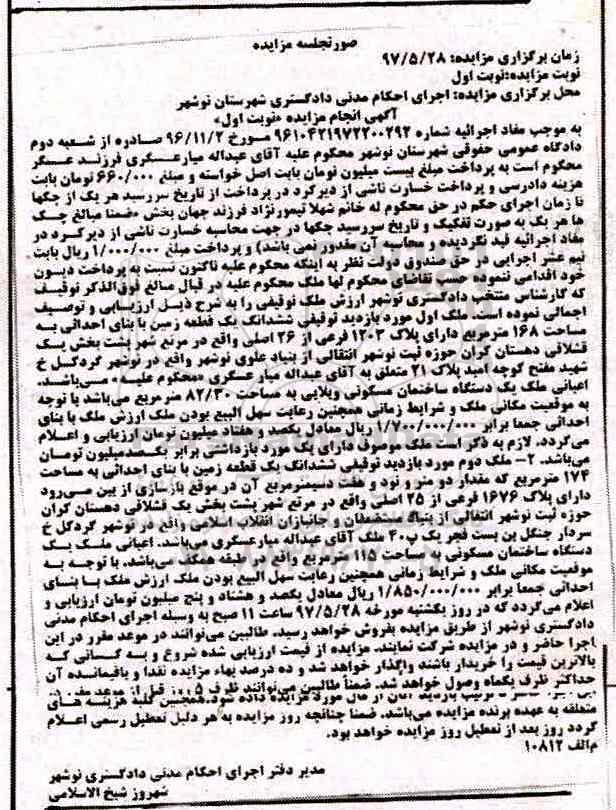 صورتجلسه مزایده
زمان برگزاری مزایده: ۹۷/۵/۲۸
نوبت مزایده:نوبت اول
محل برگزاری مزایده: اجرای احکام مدنی دادگستری شهرستان نوشهر
آگهی انجام مزایده «نوبت اول»
به موجب مفاد اجرائیه شماره ۹۶۱۰۴۲۱۹۷۲۲۰۰۲۹۲ مورخ ۹۶/۱۱/۲ صادره از شعبه دوم
دادگاه عمومی حقوقی شهرستان نوشهر محکوم علیه آقای عبداله میارعسگری فرزند عسگر
محکوم است به پرداخت مبلغ بیست میلیون تومان بابت اصل خواسته و مبلغ ۶۶۰/۰۰۰ تومان بابت
هزینه دادرسی و پرداخت خسارت ناشی از دیرکرد در پرداخت از تاریخ سررسید هر یک از چکها
تا زمان اجرای حکم در حق محکوم له خانم شهلا تیمورنژاد فرزند جهان بخش «ضمنا مبالغ چک
ها هر یک به صورت تفکیک و تاریخ سررسید چکها در جهت محاسبه خسارت ناشی از دیرکرد در
مفاد اجرائیه قید نگردیده و محاسبه آن مقدور نمی باشد) و پرداخت مبلغ ۱/۰۰۰/۰۰۰ ریال بابت
نیم عشر اجرایی در حق صندوق دولت نظر به اینکه محکوم علیه تاکنون نسبت به پرداخت دیون
خود اقدامی ننموده حسب تقاضای محکوم لها ملک محکوم علیه در قبال مبالغ فوق‌الذکر توقیف
که کارشناس منتخب دادگستری نوشهر ارزش ملک توقیفی را به شرح ذیل ارزیابی و توصیف
اجمالی نموده است. ملک اول مورد بازدید توقیفی ششدانگ یک قطعه زمین با بنای احداثی به
مساحت ۱۶۸ مترمربع دارای پلاک ۱۲۰۳ فرعی از ۲۶ اصلی واقع در مرتع شهر پشت بخش یک
قشلاقی دهستان کران حوزه ثبت نوشهر انتقالی از بنیاد علوی نوشهر واقع در نوشهر گردکل خ
شهید مفتح کوچه امید پلاک ۲۱ متعلق به آقای عبداله میار عسگری «محکوم علیه» می‌باشد.
اعیانی ملک یک دستگاه ساختمان مسکونی ویلایی به مساحت ۸۲/۳۰ مترمربع می‌باشد با توجه
به موقعیت مکانی ملک و شرایط زمانی همچنین رعایت سهل البیع بودن ملک ارزش ملک با بنای
احداثی جمعا برابر ۱/۷۰۰/۰۰۰/۰۰۰ ریال معادل یکصد و هفتاد میلیون تومان ارزیابی و اعلام
می‌گردد. لازم به ذکر است ملک موصوف دارای یک مورد بازداشتی برابر یکصدمیلیون تومان
می‌باشد. ۲- ملک دوم مورد بازدید توقیفی ششدانگ یک قطعه زمین با بنای احداثی به مساحت
۱۷۴ مترمربع که مقدار دو متر و نود و هفت دسیمترمربع آن در موقع بازسازی از بین می‌رود
دارای پلاک ۱۶۷۶ فرعی از ۲۵ اصلی واقع در مرتع شهر پشت بخش یک قشلاقی دهستان کران
حوزه ثبت نوشهر انتقالی از بنیاد مستضعفان و جانبازان انقلاب اسلامی واقع در نوشهر گردکل خ
سردار جنگل بن بست فجر یک پ۴۰ ملک آقای عبداله میارعسگری می‌باشد. اعیانی ملک یک
دستگاه ساختمان مسکونی به مساحت ۱۱۵ مترمربع واقع در طبقه همکف می‌باشد. با توجه به
موقعیت مکانی ملک و شرایط زمانی همچنین رعایت سهل البیع بودن ملک ارزش ملک با بنای
احداثی جمعا برابر ۱/۸۵۰/۰۰۰/۰۰۰ ریال معادل یکصد و هشتاد و پنج میلیون تومان ارزیابی و
اعلام می‌گردد که در روز یکشنبه مورخه ۹۷/۵/۲۸ ساعت ۱۱ صبح به وسیله اجرای احکام مدنی
دادگستری نوشهر از طریق مزایده بفروش خواهد رسید. طالبین می‌توانند در موعد مقرر در این
اجرا حاضر و در مزایده شرکت نمایند. مزایده از قیمت ارزیابی شده شروع و به کسانی که
بالاترین قیمت را خریدار باشند واگذار خواهد شد و ده درصد بهاء مزایده نقدا و باقیمانده آن
حداکثر ظرف یکماه وصول خواهد شد. ضمناً طالبین می‌توانند ظرف ۵ روز قبل از موعد مقرر در
مورد مزایده داده شود.همچنین کلیه هزینه های
متعلقه به عهده برنده مزایده می‌باشد. ضمنا چنانچه روز مزایده به هر دلیل تعطیل رسمی اعلام
گردد روز بعد از تعطیل روز مزایده خواهد بود.
م‌الف ۱۰۸۱۲
مدیر دفتر اجرای احکام مدنی دادگستری نوشهر
شهروز شیخ الاسلامی